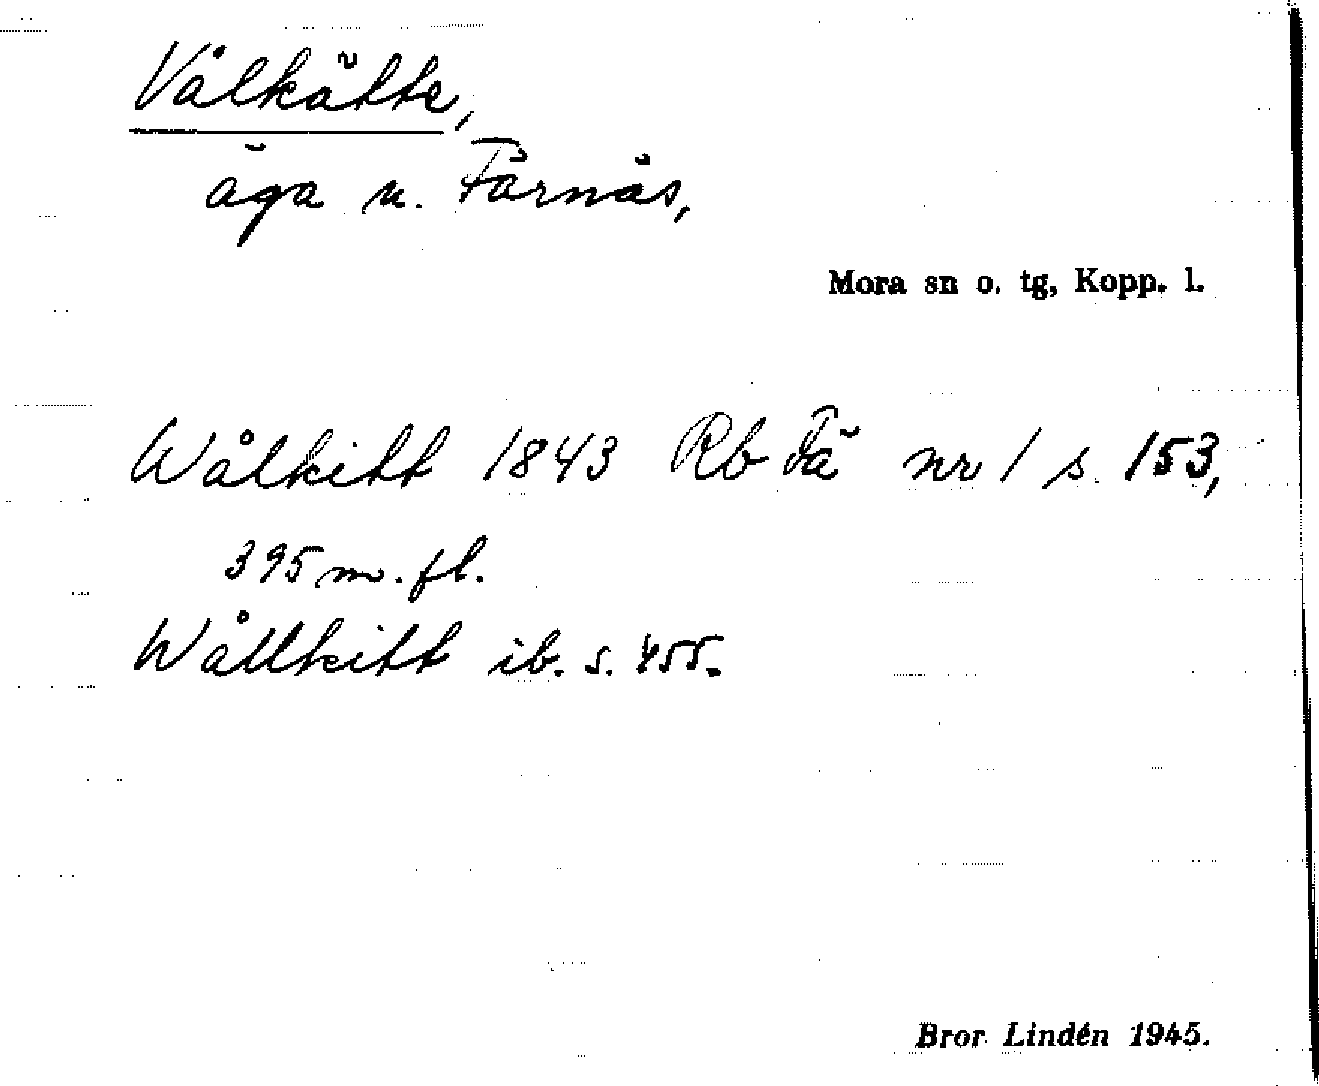 Vålkätte,
äga u. Färnäs,
Mora sn o. tg, Kopp. l.
Wålkitt 1843 Rb Fä nr 1 s. 153,
395 m. fl.
Wållkitt ib. s. 455.
Bror Lindén 1945.